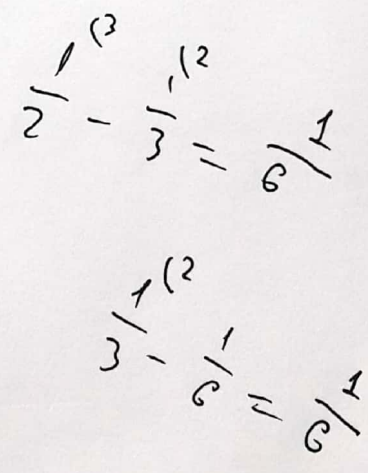 1/2 (3 - 1/3 (2 = 1/6
1/3 (2 - 1/6 = 1/6